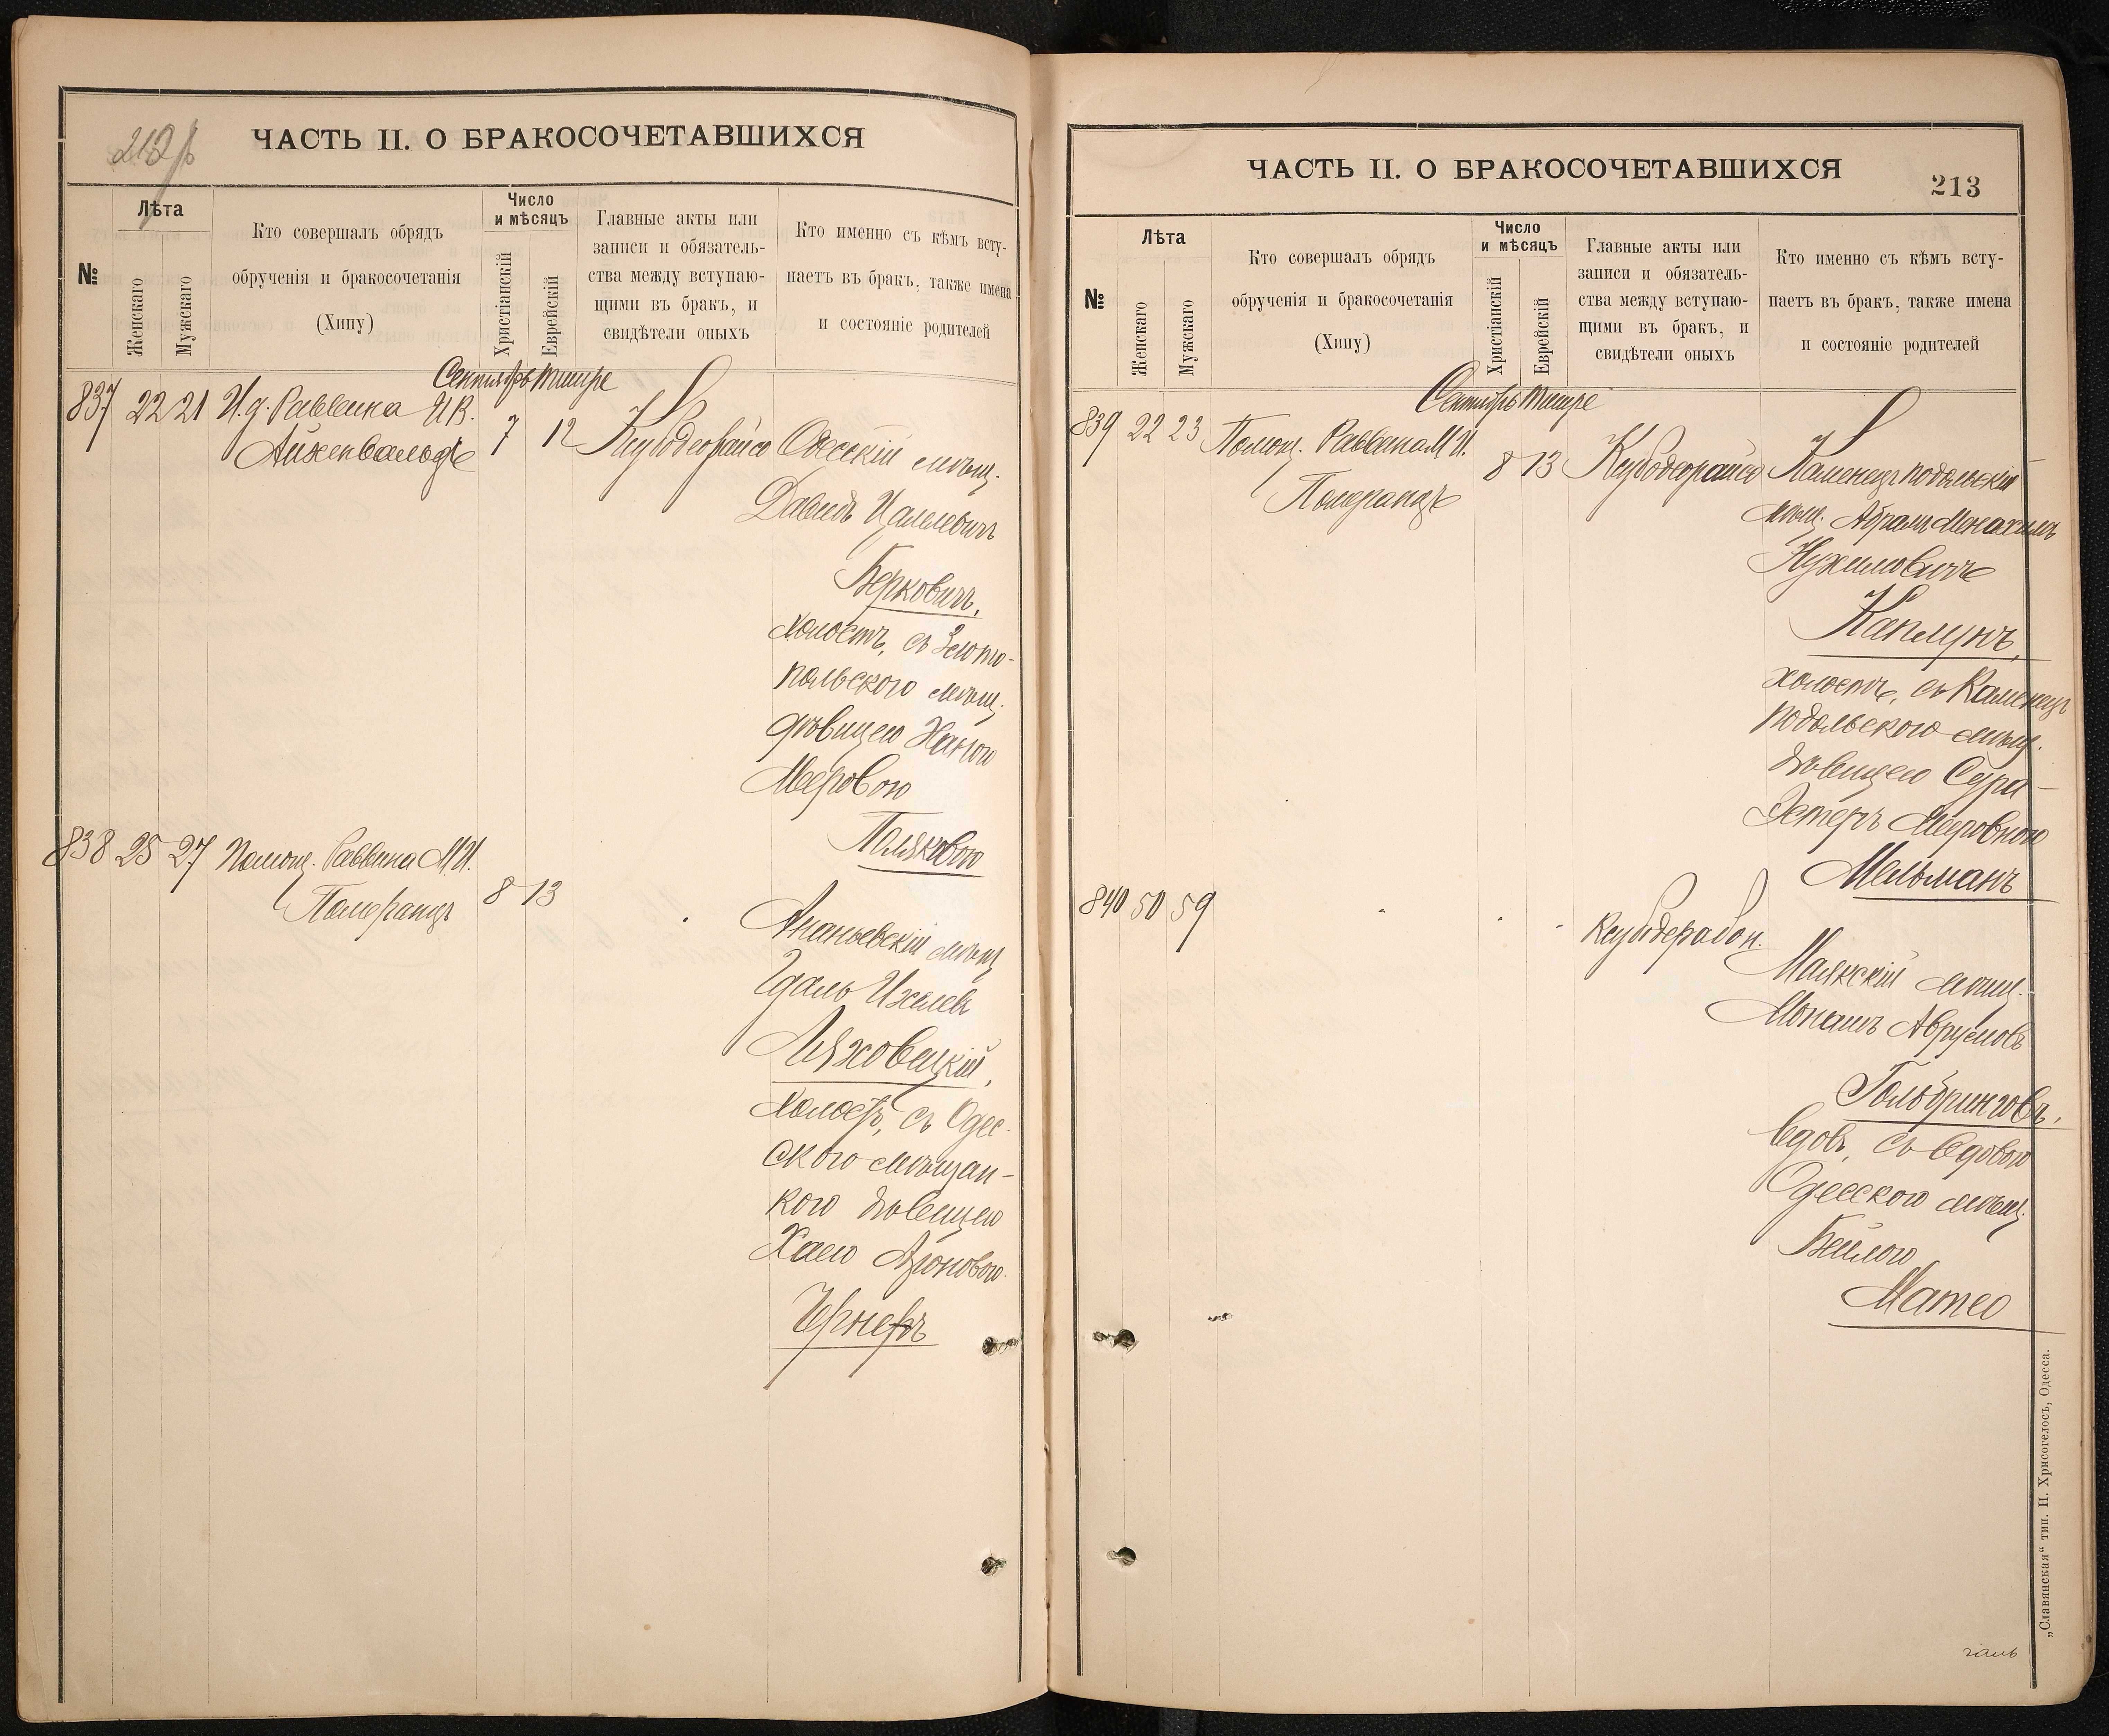 212 б
ЧАСТЬ II. О БРАКОСОЧЕТАВШИХСЯ
№
Лѣта
Женскаго
Мужскаго
Кто совершалъ обрядъ
обрученія и бракосочетанія
(Хипу)
Число
и мѣсяцъ
Христіанскій
Еврейскій
Главные акты или
записи и обязатель-
ства между вступаю-
щими въ бракъ, и
свидѣтели оныхъ
Кто именно съ кѣмъ всту-
паетъ въ бракъ, также имена
и состояніе родителей
Сентябрь Тишре
837 22 21 И.д. Раввина
Айхенвальдъ
7 12
Одесскій мѣщ.
Давидъ
Берковичъ,
холостъ, съ Злото-
польского мѣщ.
дѣвицею Ханою
Меровою
Поляковою
838 25 27 Помощ. Раввина М.И.
Померанцъ
8 13
Ананьевскій мѣщ
Гдаль Ихелев
Ляховецкій,
холостъ, съ Одес-
ского мѣщан-
кого дѣвицею
Хаею Ароновою
Чернеръ
ЧАСТЬ II. О БРАКОСОЧЕТАВШИХСЯ
213
№
Лѣта
Женскаго
Мужскаго
Кто совершалъ обрядъ
обрученія и бракосочетанія
(Хипу)
Число
и мѣсяцъ
Христіанскій
Еврейскій
Главные акты или
записи и обязатель-
ства между вступаю-
щими въ бракъ, и
свидѣтели оныхъ
Кто именно съ кѣмъ всту-
паетъ въ бракъ, также имена
и состояніе родителей
Сентябрь Тишре
839 22 23 Помощ. Раввина М.И.
Померанцъ
8 13
Каменецъ подольскій
мѣщ. Абрамъ Менахимъ
Нухимовичъ
Каплунъ,
холостъ, съ Каменецъ
Подольского мѣщ.
дѣвицею Сура-
Эстеръ Мееровною
Мельманъ
840 50 59
Маякскій мѣщ.
Монашъ Аврумовъ
Гольбринговъ,
вдовъ, съ вдовою
Одесского мѣщ.
Бейлою
Матео
„Славянская“ тип. Н. Хрисогелосъ, Одесса.